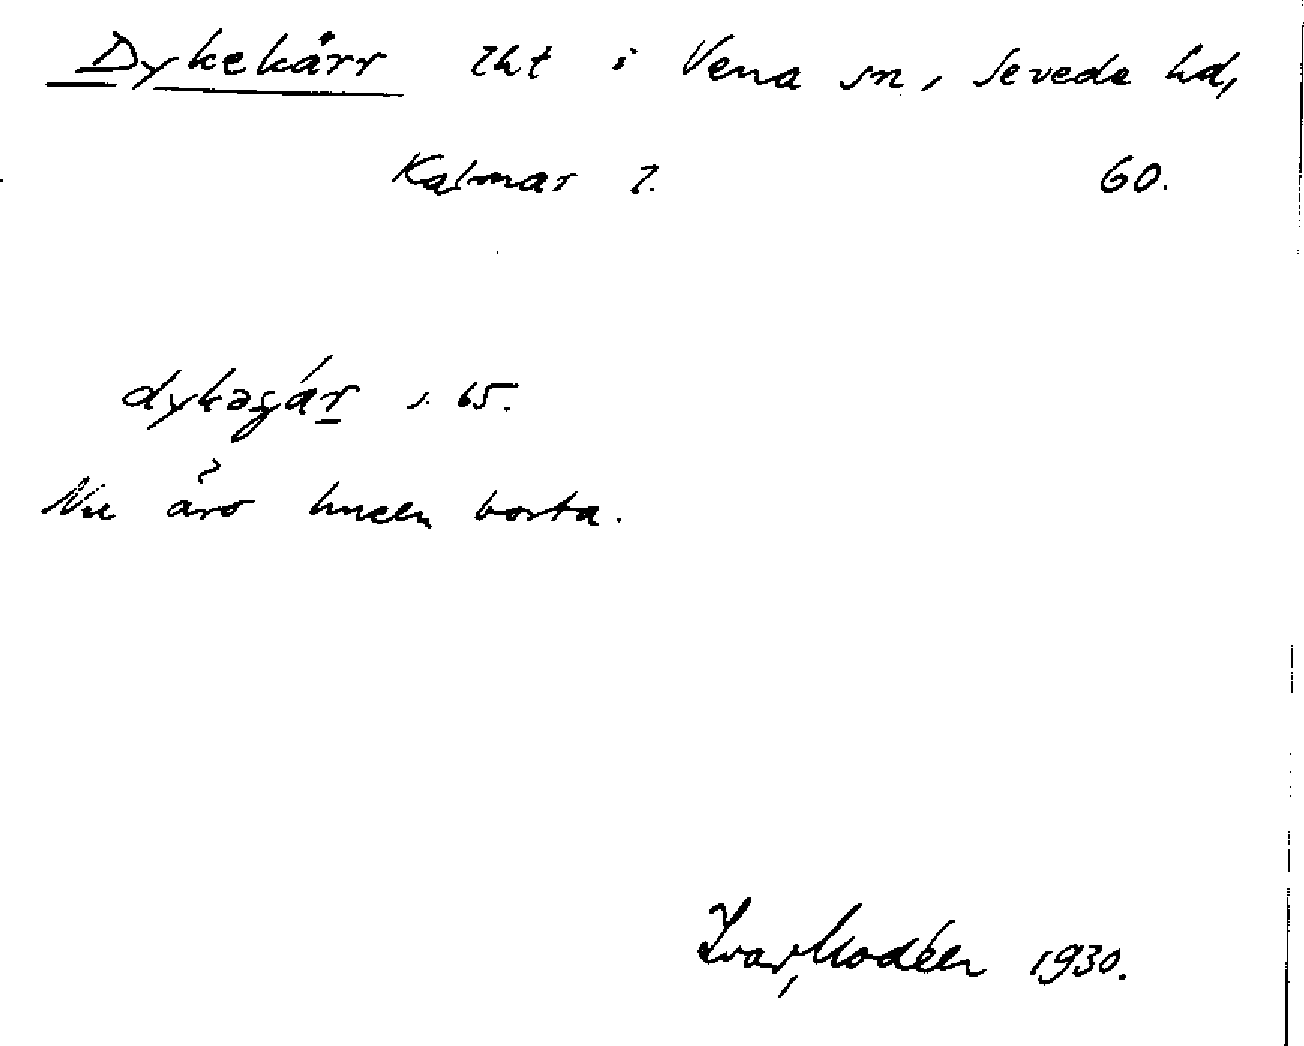 Dykekärr lht i Vena sn, Sevede hd,
Kalmar l. 60.
dykəʒár s. 65.
Nu äro husen borta.
Ivar Modéer 1930.